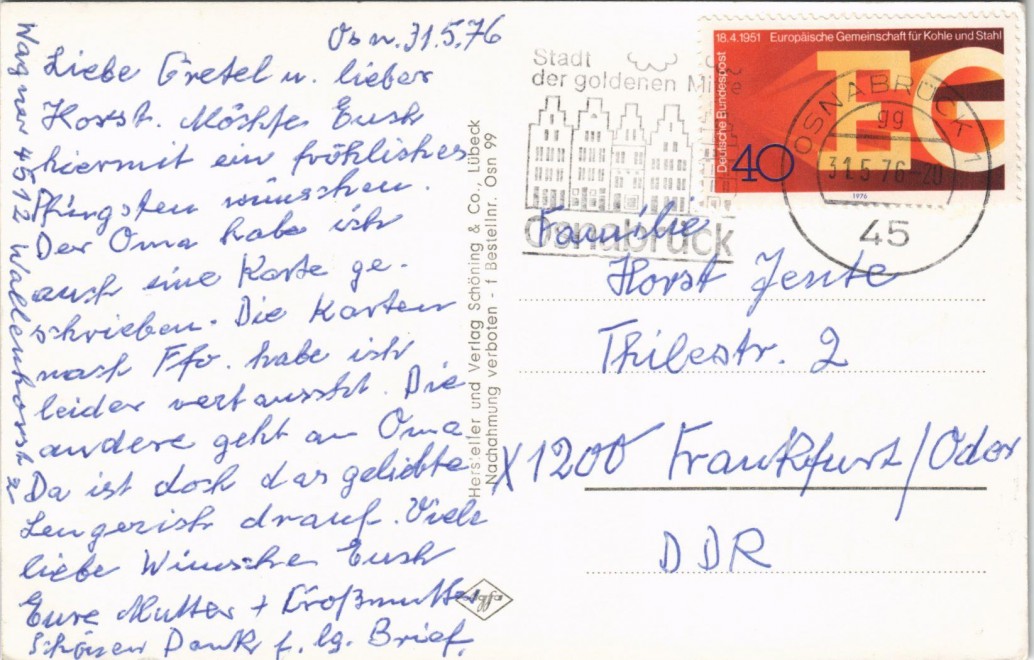 Osn. 31.5.76
Liebe Gretel u. lieber
Horst. Möchte Euch
hiermit ein fröhliches
Pfingsten wünschen.
Der Oma habe ich
auch eine Karte ge-
schrieben. Die Karten
nach Ffo. habe ich
leider vertauscht. Die
andere geht an Oma
Da ist doch das geliebte
Lengerich drauf. Viele
liebe Wünsche Euch
Eure Mutter + Großmutter
Schönen Dank f. lg. Brief.
Wagner 4512 Wallenhorst 2
Hersteller und Verlag Schöning & Co., Lübeck
Nachahmung verboten - f Bestellnr. Osn 99
agfa
Stadt
der goldenen Mitte
Osnabrück
18.4.1951 Europäische Gemeinschaft für Kohle und Stahl
Deutsche Bundespost
EG
40
1976
OSNABRÜCK 1
gg
31.5.76-20
45
Familie
Horst Jente
Thilestr. 2
X1200 Frankfurt/Oder
DDR